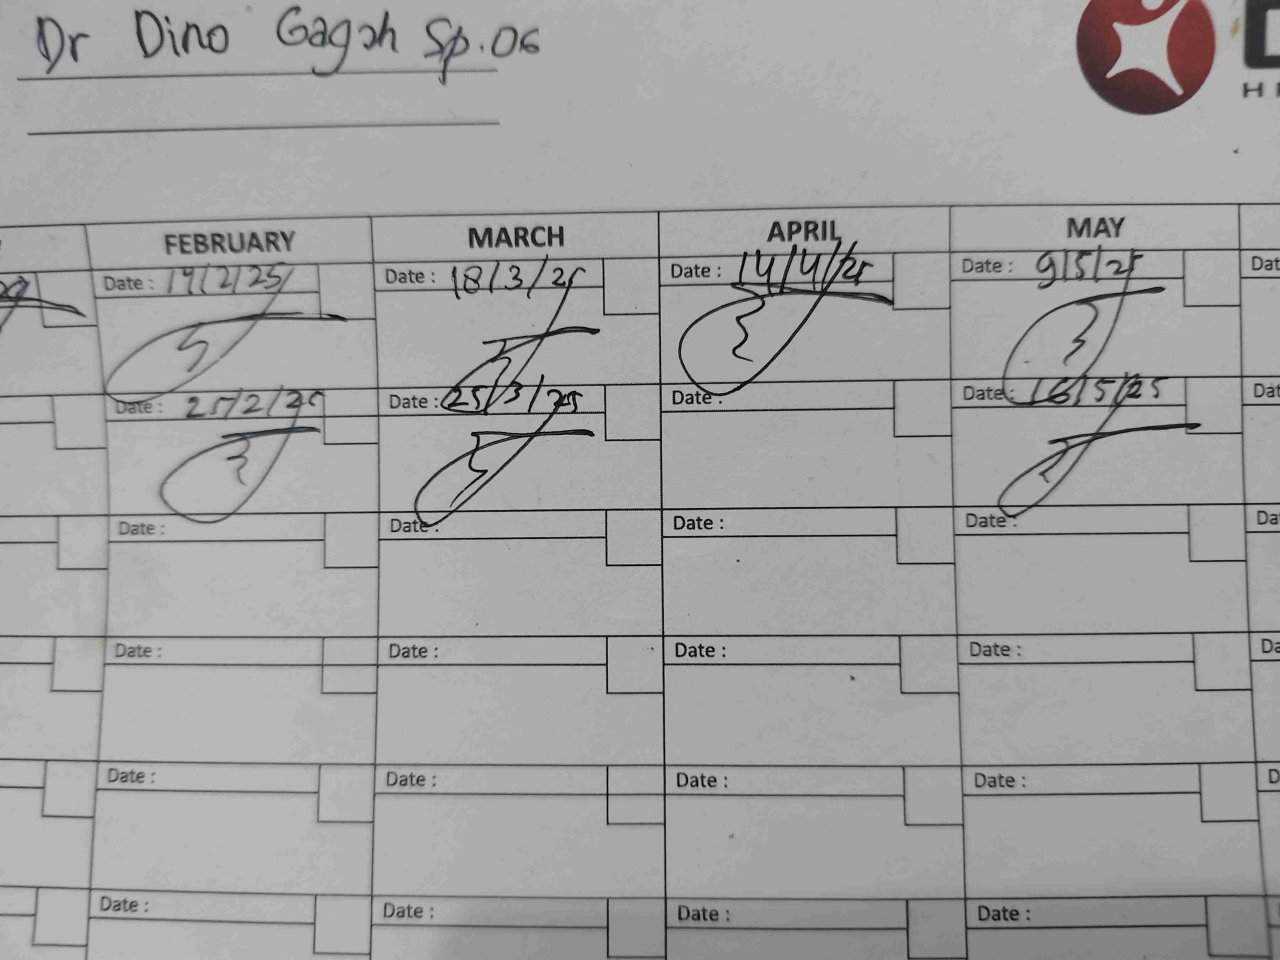 Dr Dino Gagah Sp.OG
D
H
FEBRUARY MARCH APRIL MAY
Date : 19/2/25 Date : 18/3/25 Date : 14/4/25 Date : 9/5/25 Dat
Date : 25/2/25 Date : 25/3/25 Date : Date : 16/5/25 Dat
Date : Date : Date : Date : Da
Date : Date : Date : Date : Da
Date : Date : Date : Date : D
Date : Date : Date : Date :